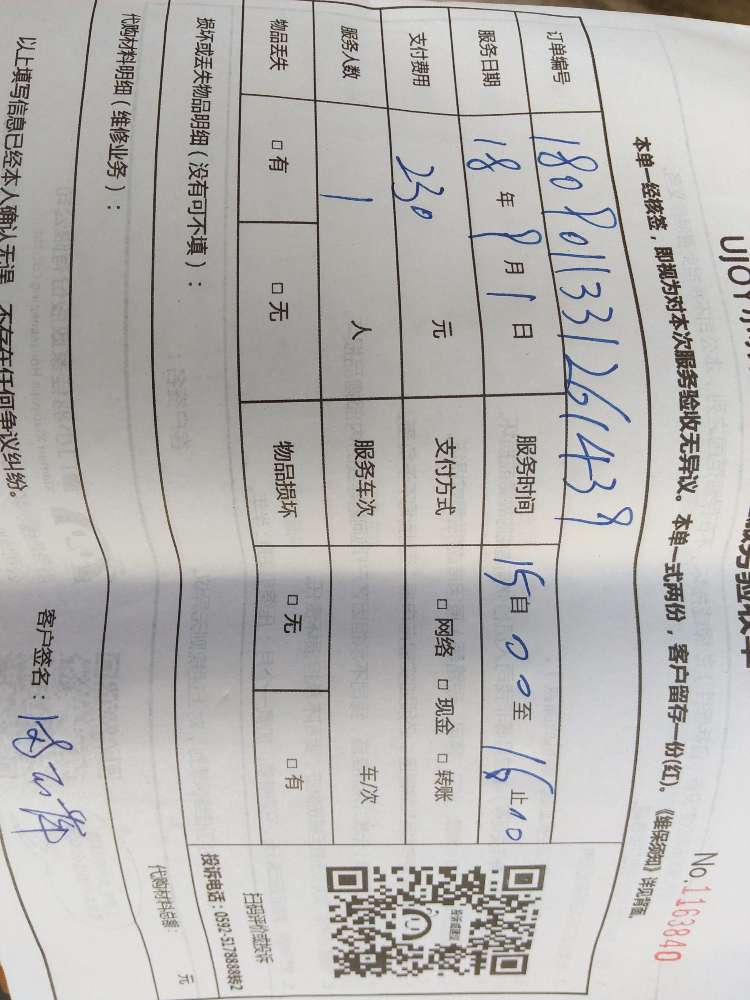 UJOY
服务验收单
No.1163840
本单一经核签，即视为对本次服务验收无异议。本单一式两份，客户留存一份(红)。《维保须知》详见背面。
订单编号 1808011331261439
服务日期 18 年 8 月 1 日 服务时间 15 自 00 至 16 止 10
支付费用 230 元 支付方式 □ 网络 □ 现金 □ 转账
服务人数 1 人 服务车次 车/次
物品丢失 □ 有 □ 无 物品损坏 □ 无 □ 有
扫码评价或投诉
投诉电话：0592-5178888转2
损坏或丢失物品明细（没有可不填）：
代购材料明细（维修业务）：
代购材料总额： 元
以上填写信息已经本人确认无误，不存在任何争议纠纷。
客户签名：